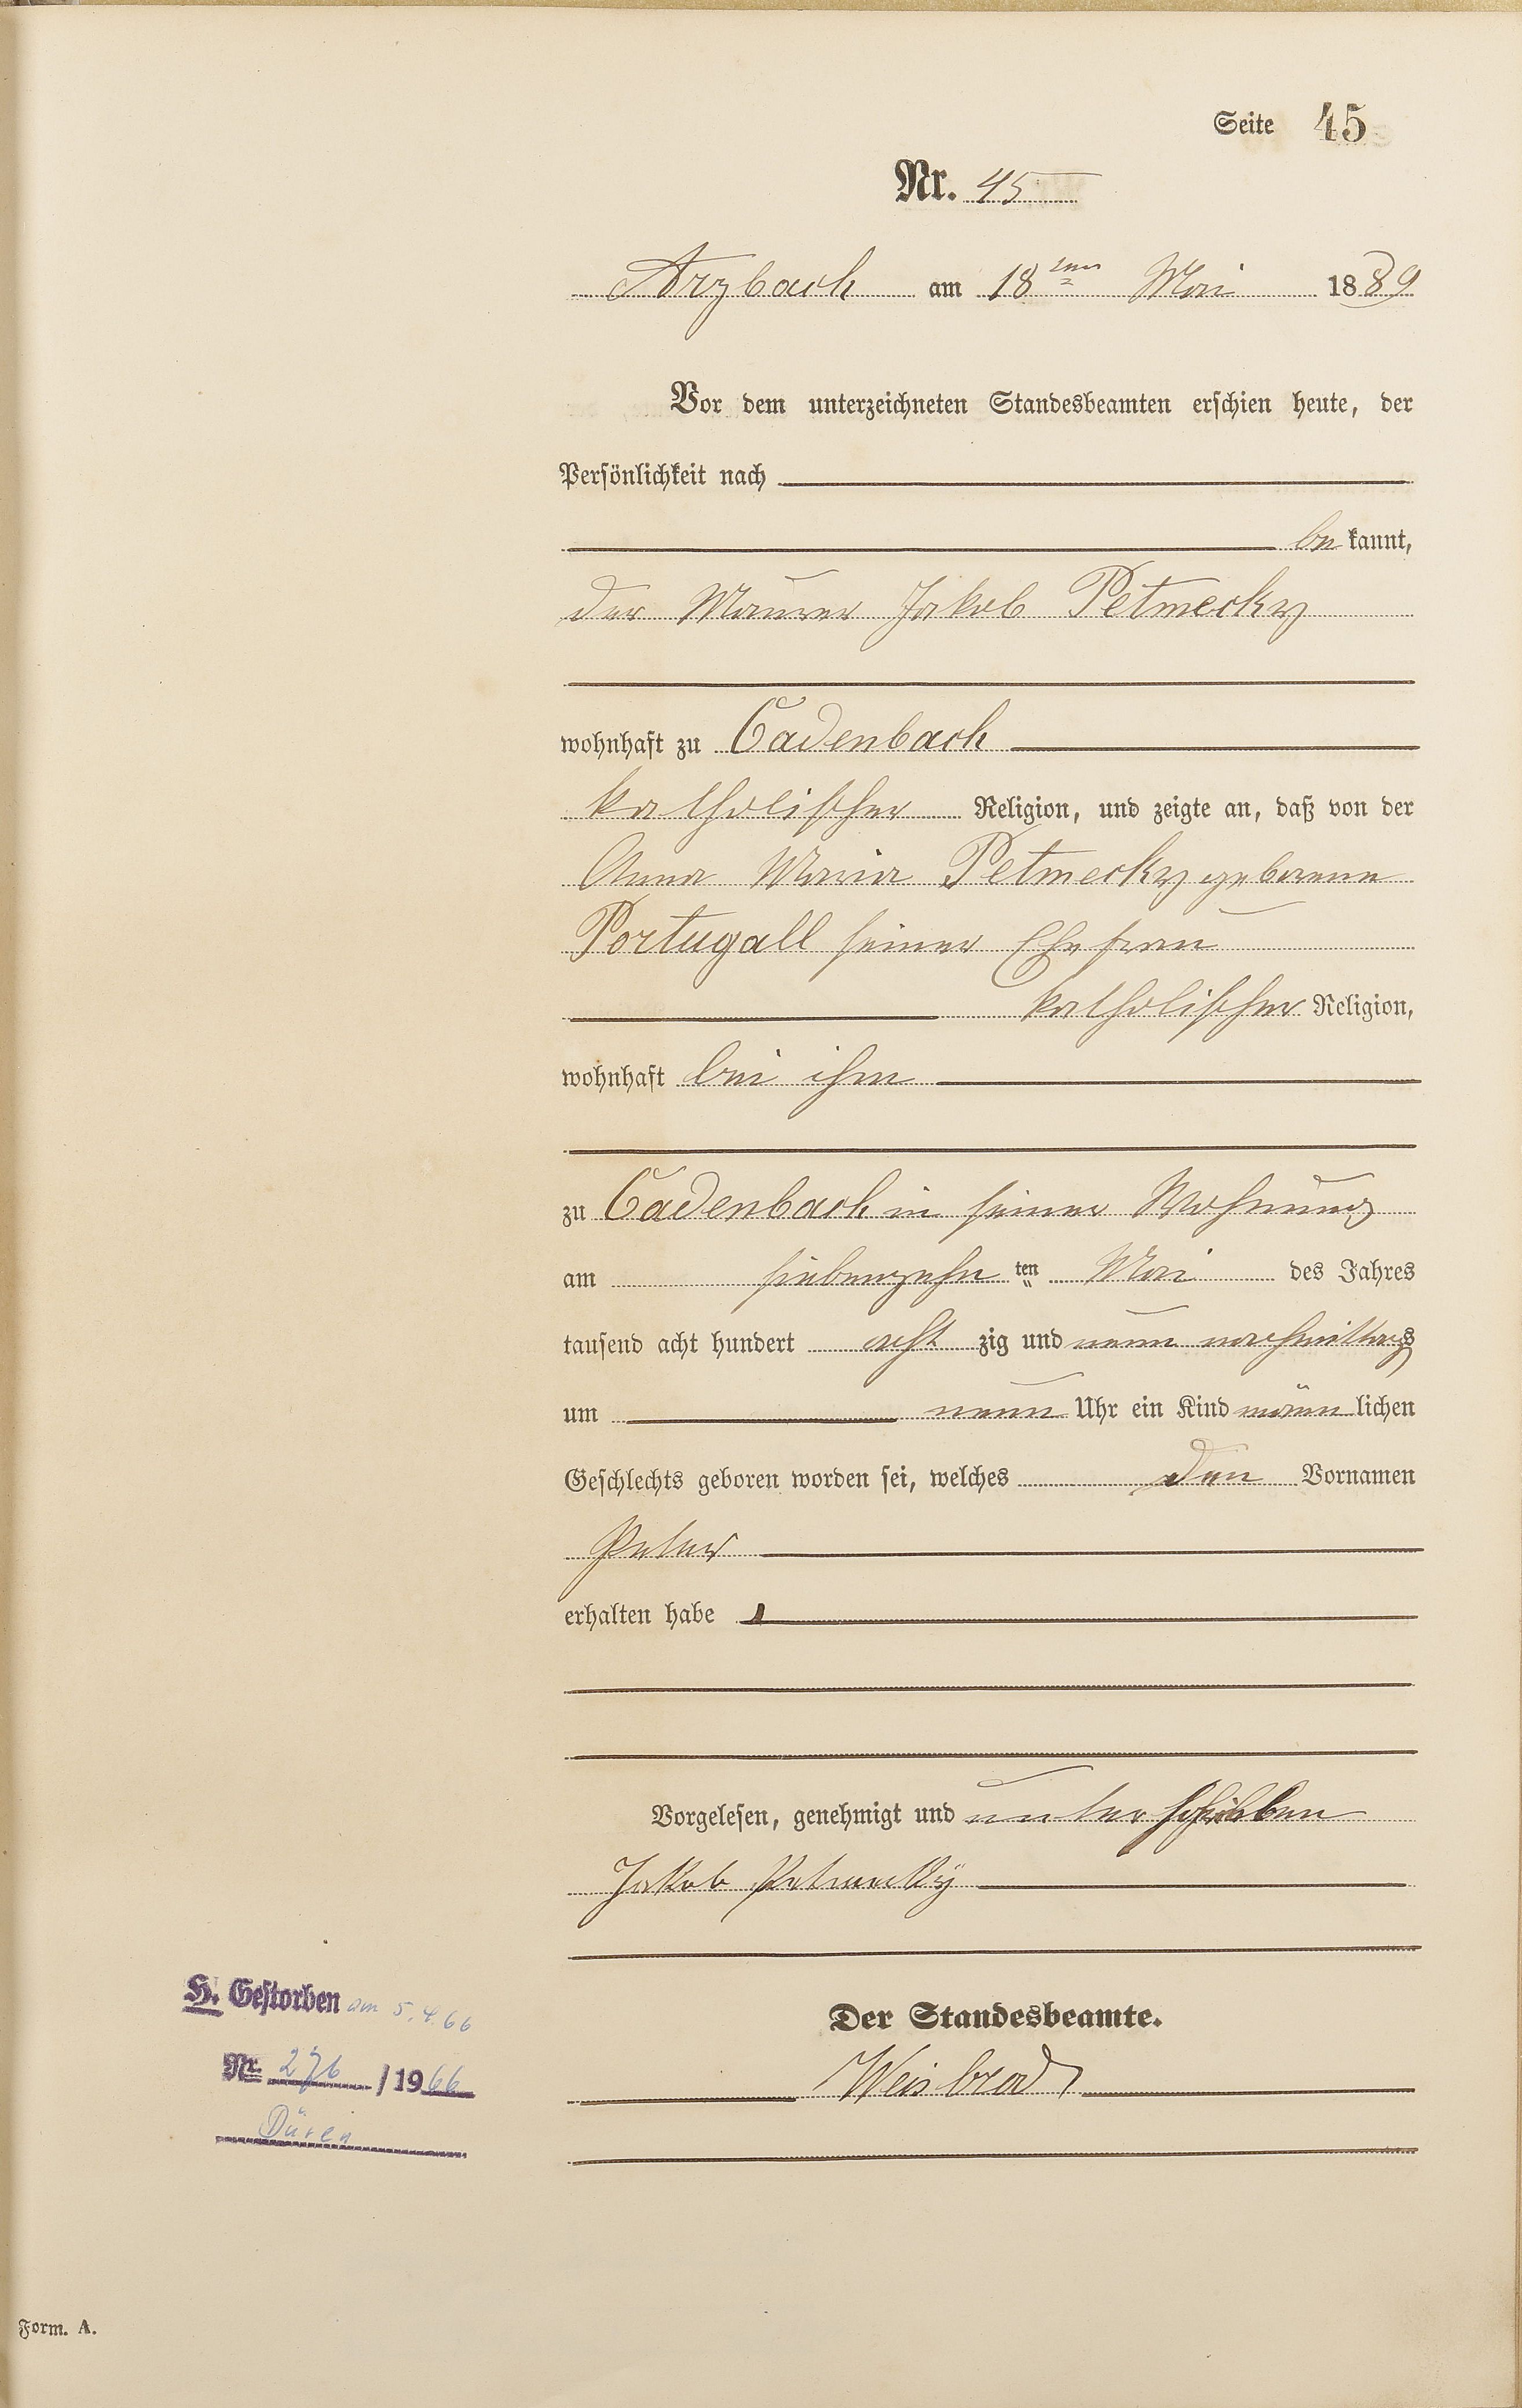 Seite 45
Nr. 45
Arzbach am 18ten Mai 1889
Vor dem unterzeichneten Standesbeamten erschien heute, der
Persönlichkeit nach
bekannt,
der Maurer Jakob Petmecky
wohnhaft zu Cadenbach
katholischer Religion, und zeigte an, daß von der
Anna Maria Petmecky geborene
Portugall seiner Ehefrau
katholischer Religion,
wohnhaft bei ihm
zu Cadenbach in seiner Wohnung
am siebenzehnten Mai des Jahres
tausend acht hundert achtzig und neun nachmittags
um neun Uhr ein Kind männlichen
Geschlechts geboren worden sei, welches den Vornamen
Peter
erhalten habe
Vorgelesen, genehmigt und unterschrieben
Jakob Petmecky
H. Gestorben am 5.4.66
Nr. 276/1966
Düren
Der Standesbeamte.
Weisbrod
Form. A.